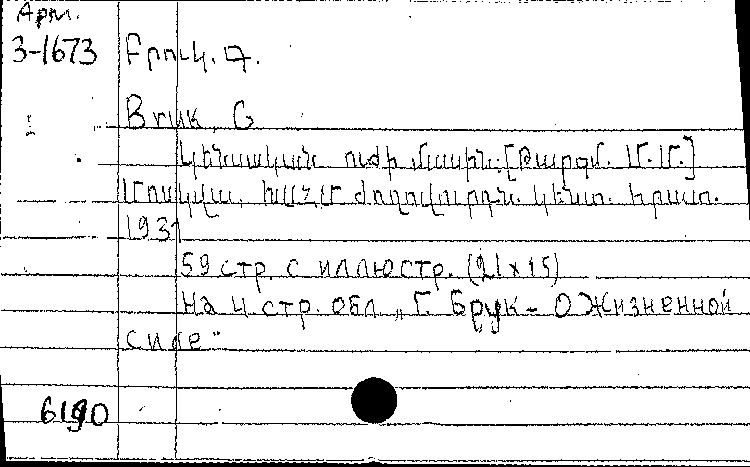 Арм.
3-1673
Բրուկ. Գ.
Bruk, G
Կենսական ուժի մասին: [Թարգմ. Մ.Մ.]
Մոսկվա, ԽՍՀՄ ժողովուրդն. կենտ. հրատ.
1931
59 стр. с иллюстр. (21x15)
На 4 стр. обл. „Г. Брук - О Жизненной
силе"
6190